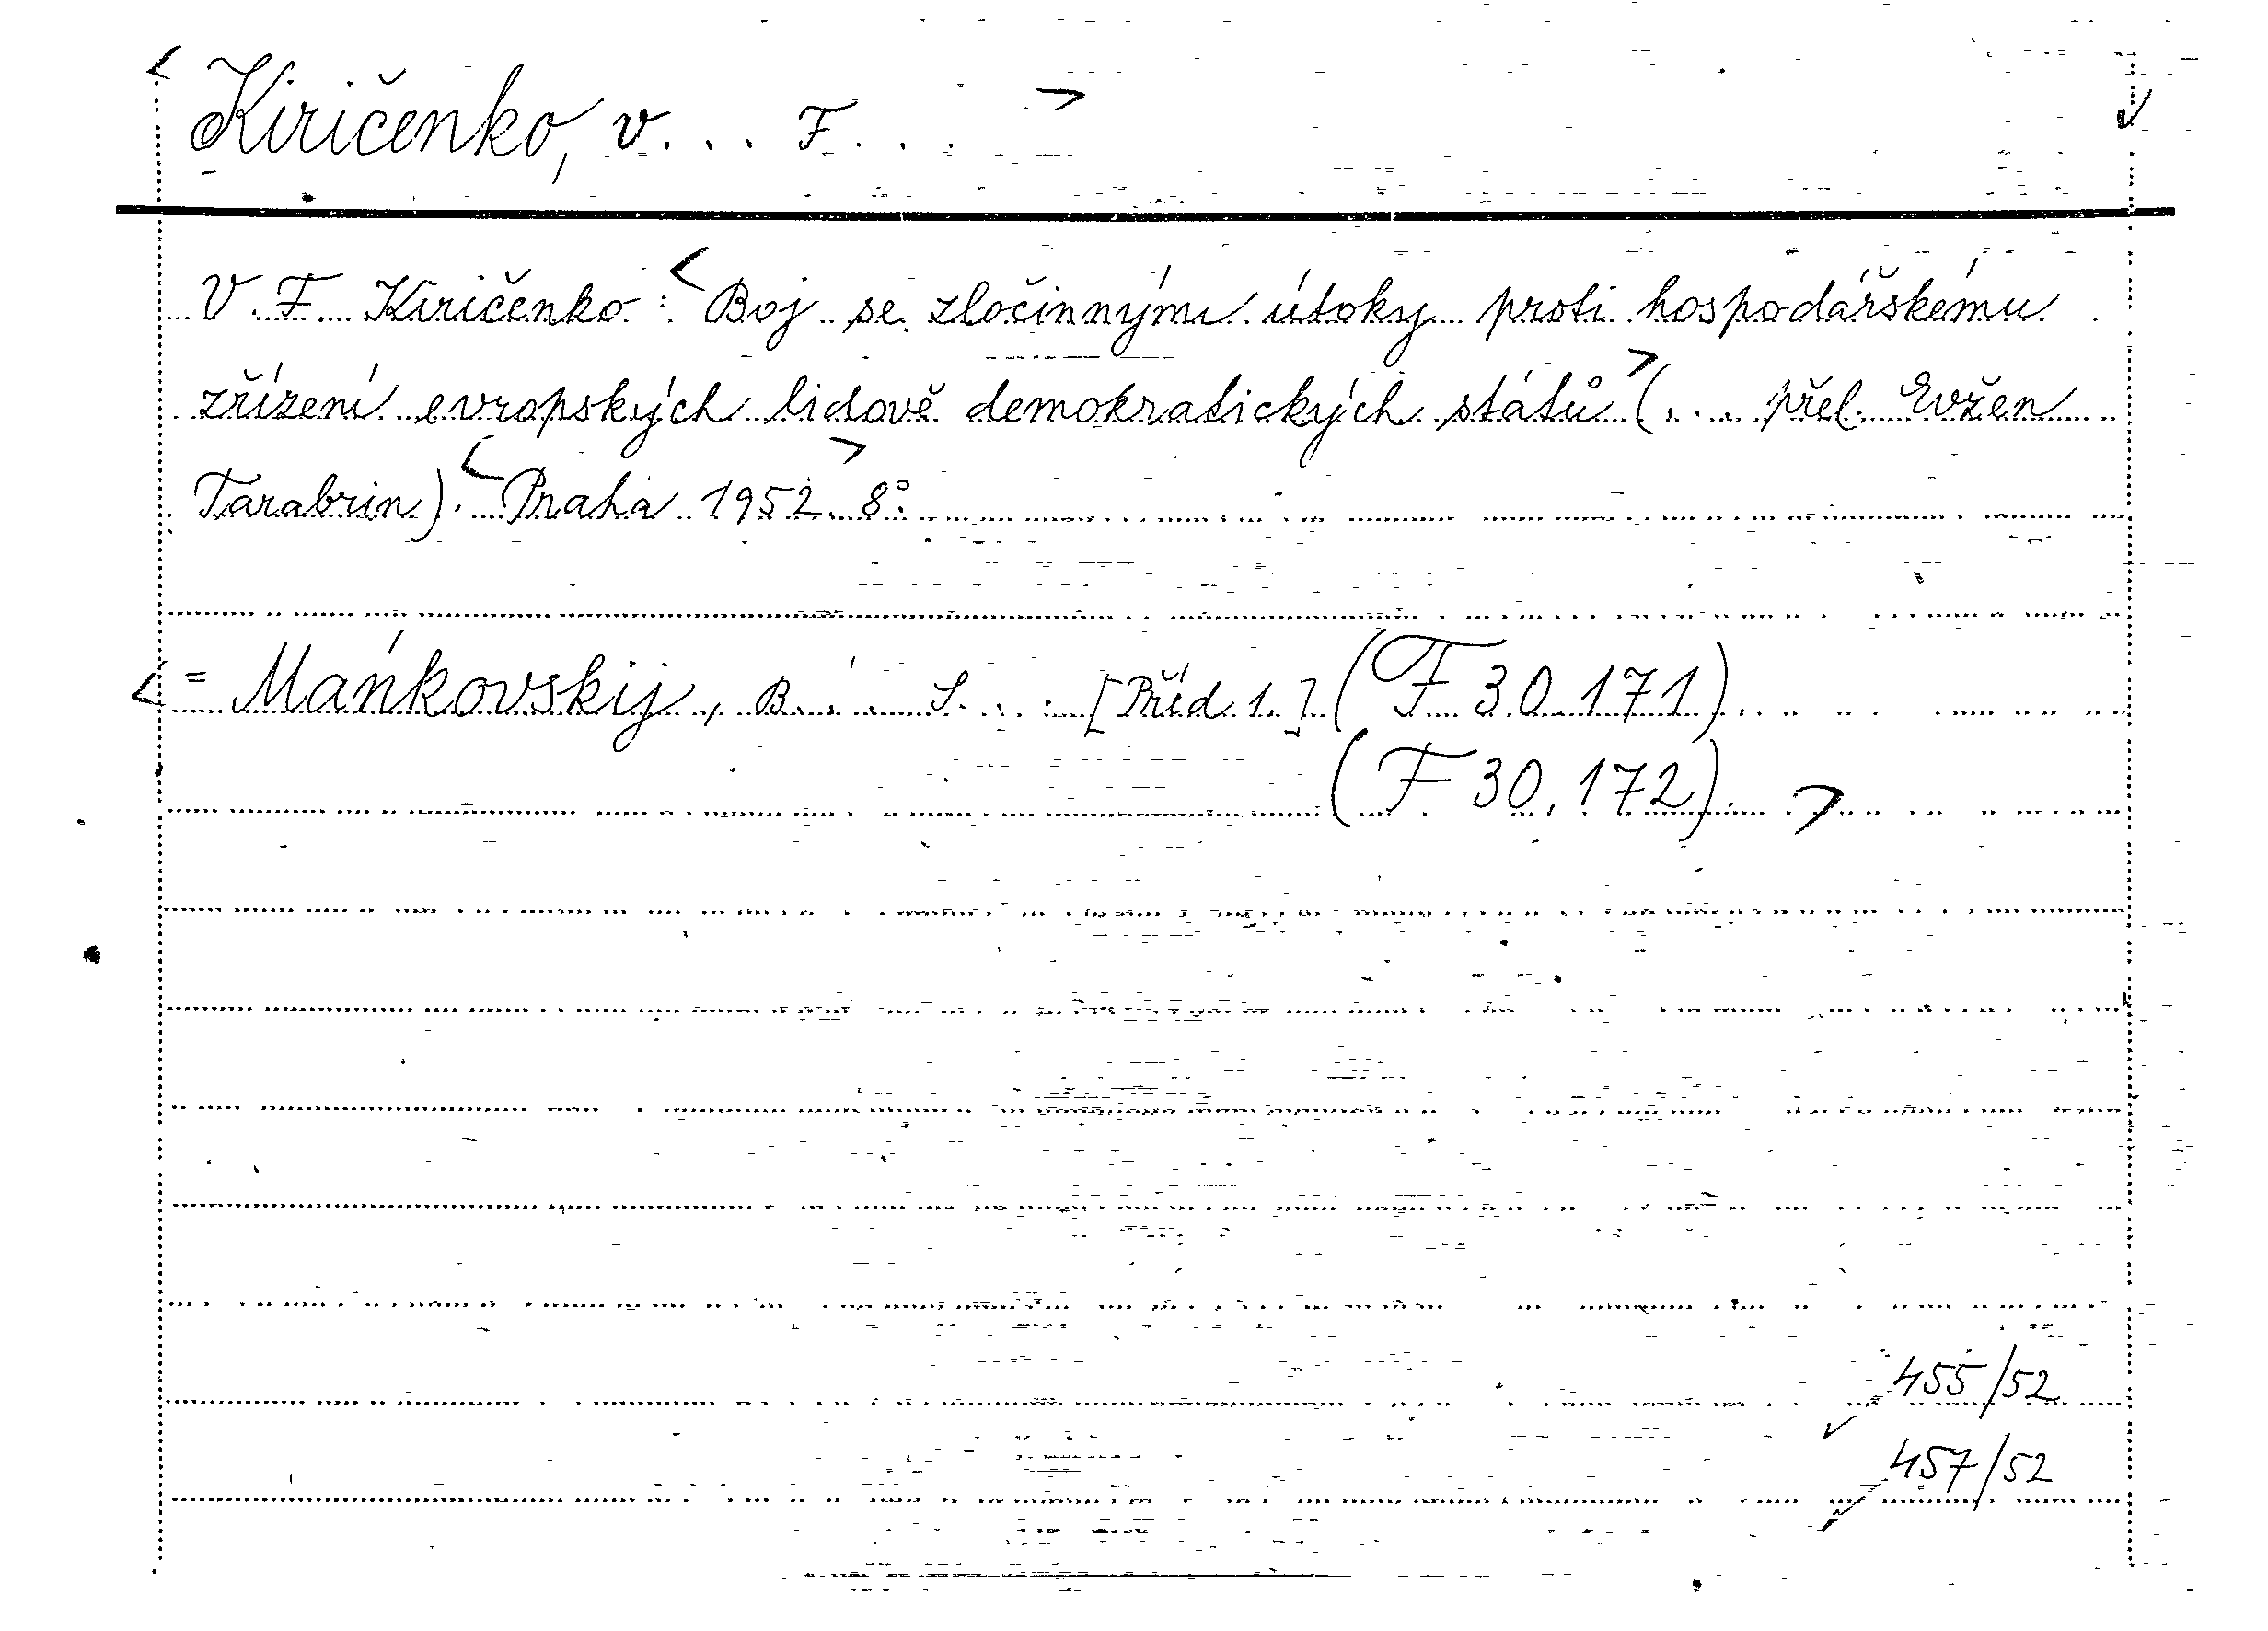 < Kiričenko, V... F... >
V. F. Kiričenko: < Boj se zločinnými útoky proti hospodářskému
zřízení evropských lidově demokratických států > (... přel. Evžen
Tarabrin). < Praha 1952 > 8°.
< = Mańkovskij, B... S... [Příd. 1.] (F 30.171)
(F 30.172). >
455/52
457/52